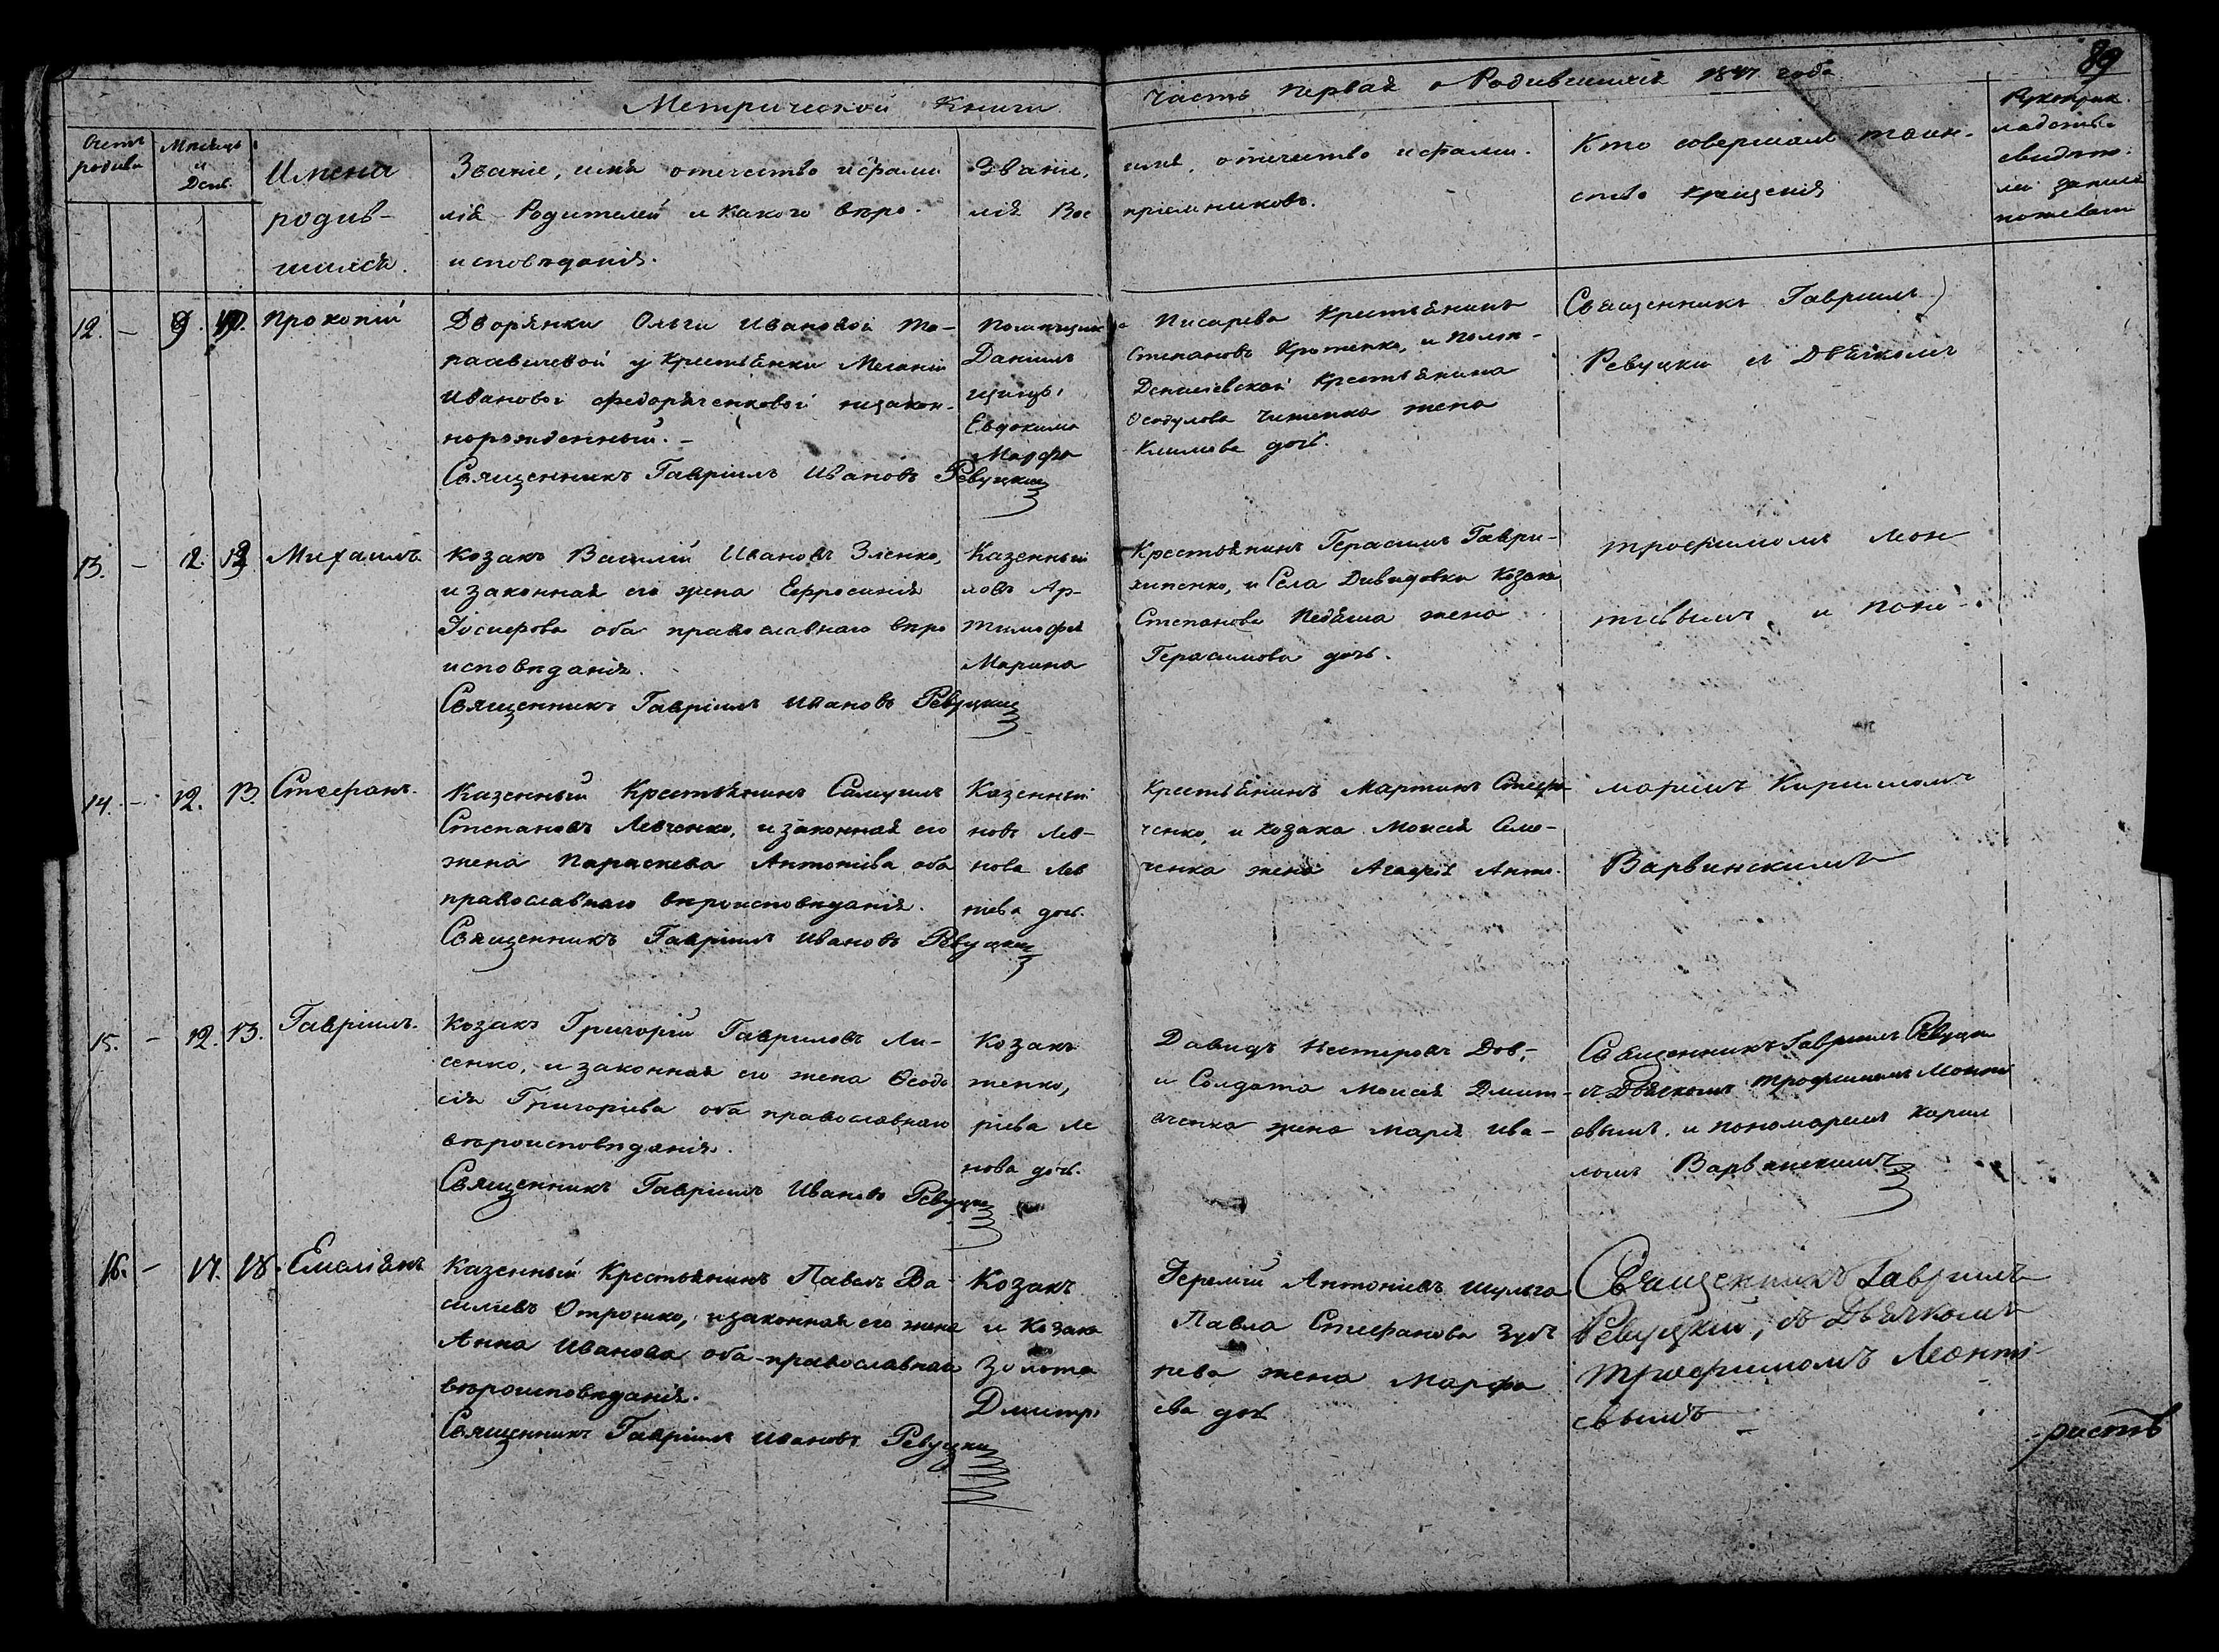 89
Метрической Книги
Часть первая о Родившихся 1847 года
Счетъ родивш
Мѣсяцъ и День
Имена
родив-
шихся.
Званіе, имя отечество и фами
лія Родителей и какого вѣро-
исповѣданія.
Званіе,
лія Вос
имя, отечество и фами-
пріемниковъ.
Кто совершалъ таин-
ство крещенія
Рукоприк-
ладство
свидѣте-
лей записи
по желанію
12. — 9. 10. Прокопій
Дворянки Ольги Ивановой
у крестьянки Меланіи
Ивановой Федорченковой незакон-
норожденный. —
Священникъ Гавріилъ Ивановъ Ревуцкій
Даніилъ
Евдокима
Марфа
Писарева Крестьянинъ
Степановъ и помѣ-
крестьянина
жена
Климова дочь.
Священникъ Гавріилъ
Ревуцкій съ Дьячкомъ
13. — 12. 13 Михаилъ
Козакъ Василій Ивановъ Зленко,
и законная его жена Евфросинія
Іосифова оба православнаго вѣро
исповѣданія.
Священникъ Гавріилъ Ивановъ Ревуцкій
Казенный
ловъ Ар-
Тимофея
Марина
Крестьянинъ Герасимъ Гаври-
хипенко, и Села Давидовки Козака
Степанова жена
Герасимова дочь.
Трофимомъ Леон
тіевымъ, и поно-
14. — 12. 13. Стефанъ.
Казенный Крестьянинъ Самуилъ
Степановъ Левченко, и законная его
жена Параскева Антоніева оба
православнаго вѣроисповѣданія.
Священникъ Гавріилъ Ивановъ Ревуцкій
Казенный
новъ Лев-
нова Лев
ніева дочь.
Крестьянинъ Мартинъ Стефа-
ченко, и козака Моисея Семе-
ченка жена Агафія Анто-
маремъ Кирилломъ
Варвинскимъ
15. — 12. 13. Гавріилъ.
Козакъ Григорій Гавриловъ Ли-
сенко, и законная его жена Феодо
сія Григоріева оба православнаго
вѣроисповѣданія.
Священникъ Гавріилъ Ивановъ Ревуцкій
Козакъ
женко,
ріева Ле
нова дочь.
Давидъ Нестеровъ Дов-
и Солдата Моисея Дмит-
жена Марія Ива-
Священникъ Гавріилъ Ревуцкій
съ Дьячкомъ Трофимомъ Леонті
евымъ, и пономаремъ Кирил
ломъ Варвинскимъ
16. — 17. 18. Емеліянъ
Казенный Крестьянинъ Павелъ Ва-
силіевъ Отрошко, и законная его жена
Анна Иванова оба православнаго
вѣроисповѣданія.
Священникъ Гавріилъ Ивановъ Ревуцкій
Козакъ
и Козака
Золота
Дмитрі
Іеремій Антоніевъ Шульга
Павла Стефанова
рева жена Марфа
ева дочь
Священникъ Гавріилъ
Ревуцкій, съ Дьячкомъ
Трофимомъ Леонті
евымъ